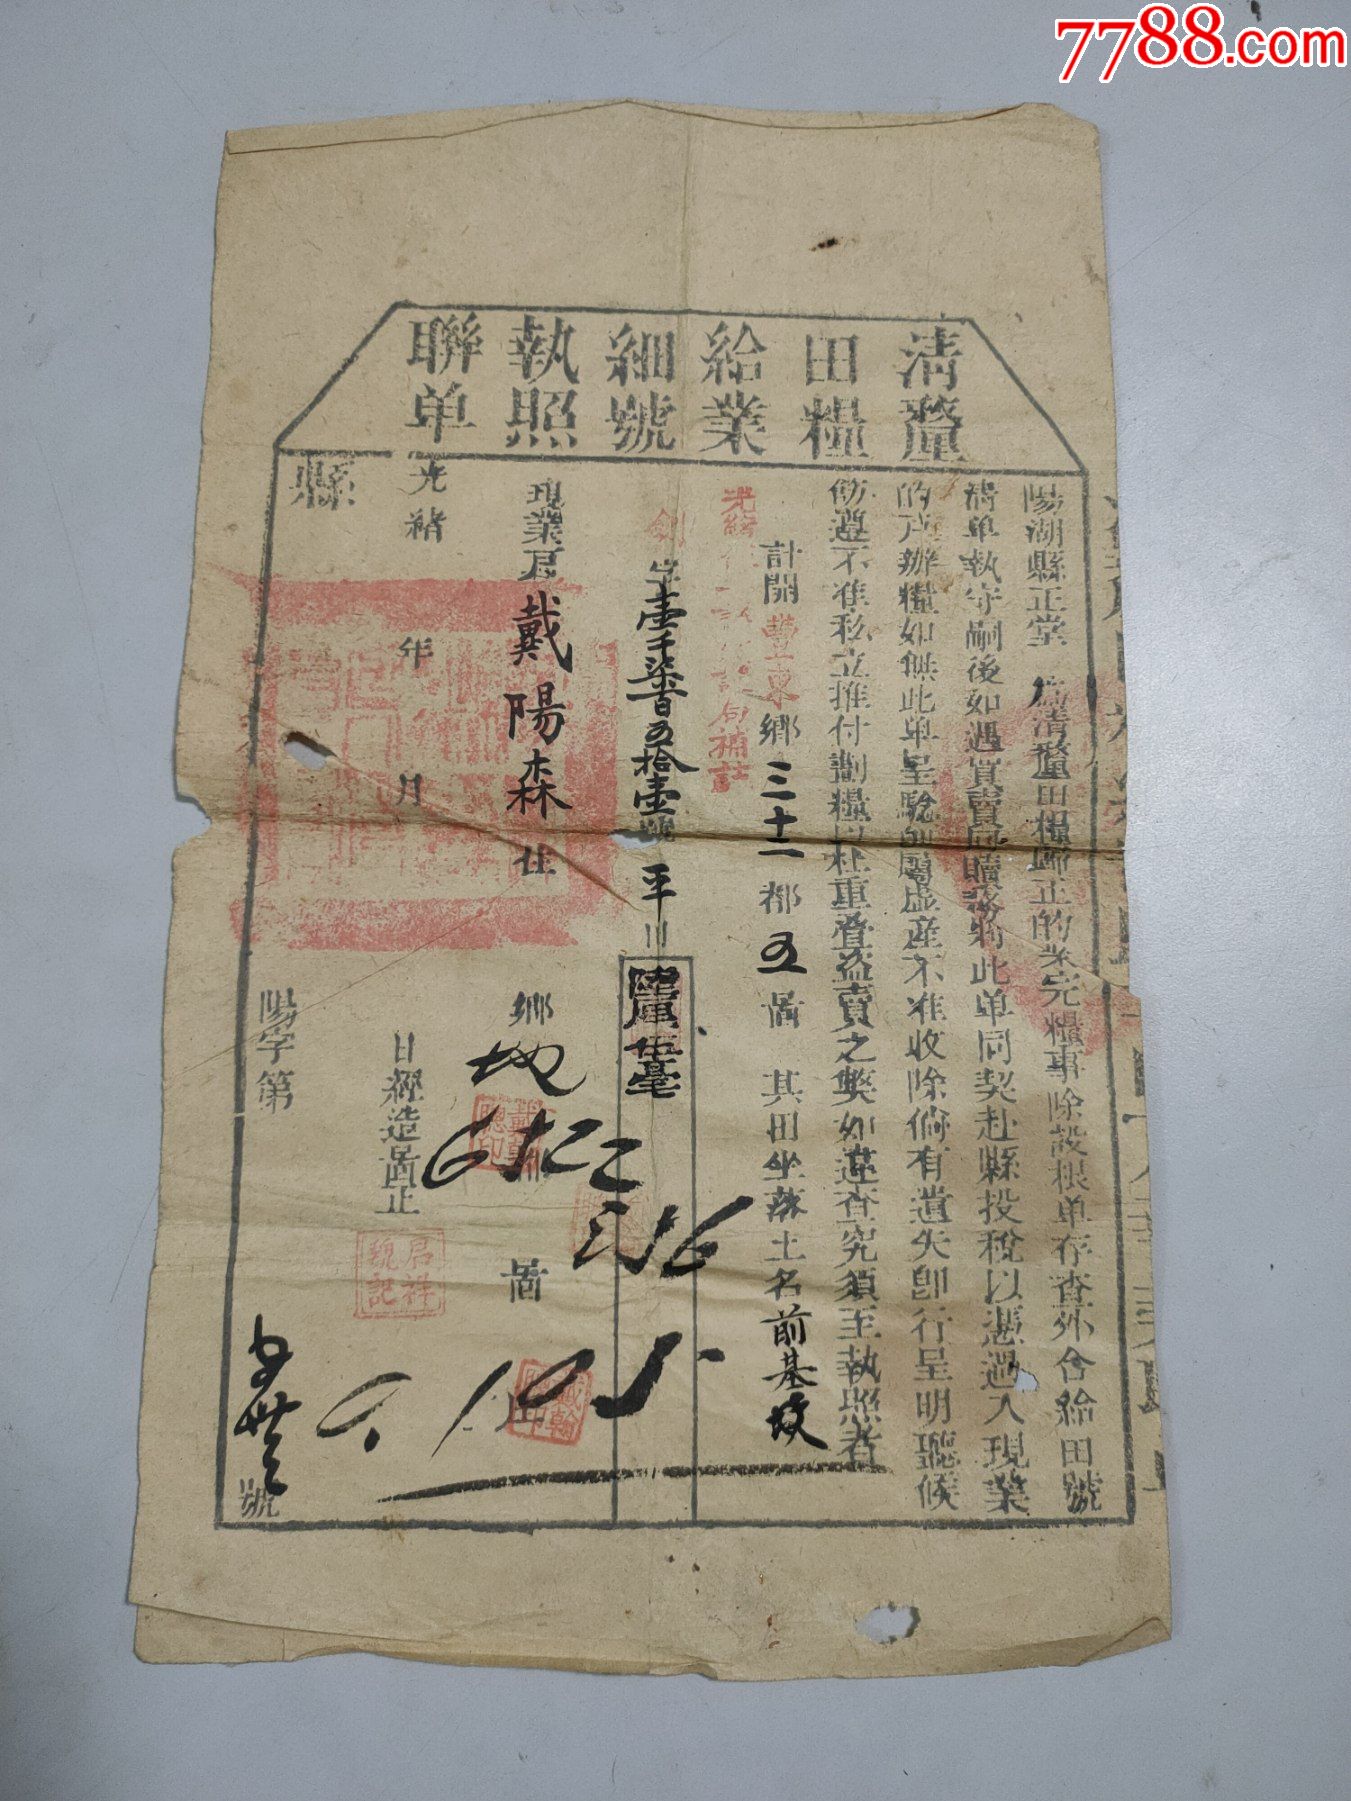 7788.com
清釐
田糧
給業
細號
執照
聯单
陽湖縣正堂 為清釐田糧歸正的米完糧事除設根单存查外合給田號
清单執守嗣後如遇買賣回贖務將此单同契赴縣投稅以憑過入現業
的戶辦糧如無此单呈驗即闗虛產不准收除倘有遺失即行呈明聽候
飭遵不准私立推付劃糧以杜重疊盜賣之獘如違查究須至執照者
計開豐東鄉三十一都五啚 其田坐落土名前基墳
光緒 補註
字壹千柒百五拾壹號平
伍毫
現業戶戴陽森 住 鄉 啚
地
光緒 年 月 日經造啚正
君祥號記
縣 陽字第 號